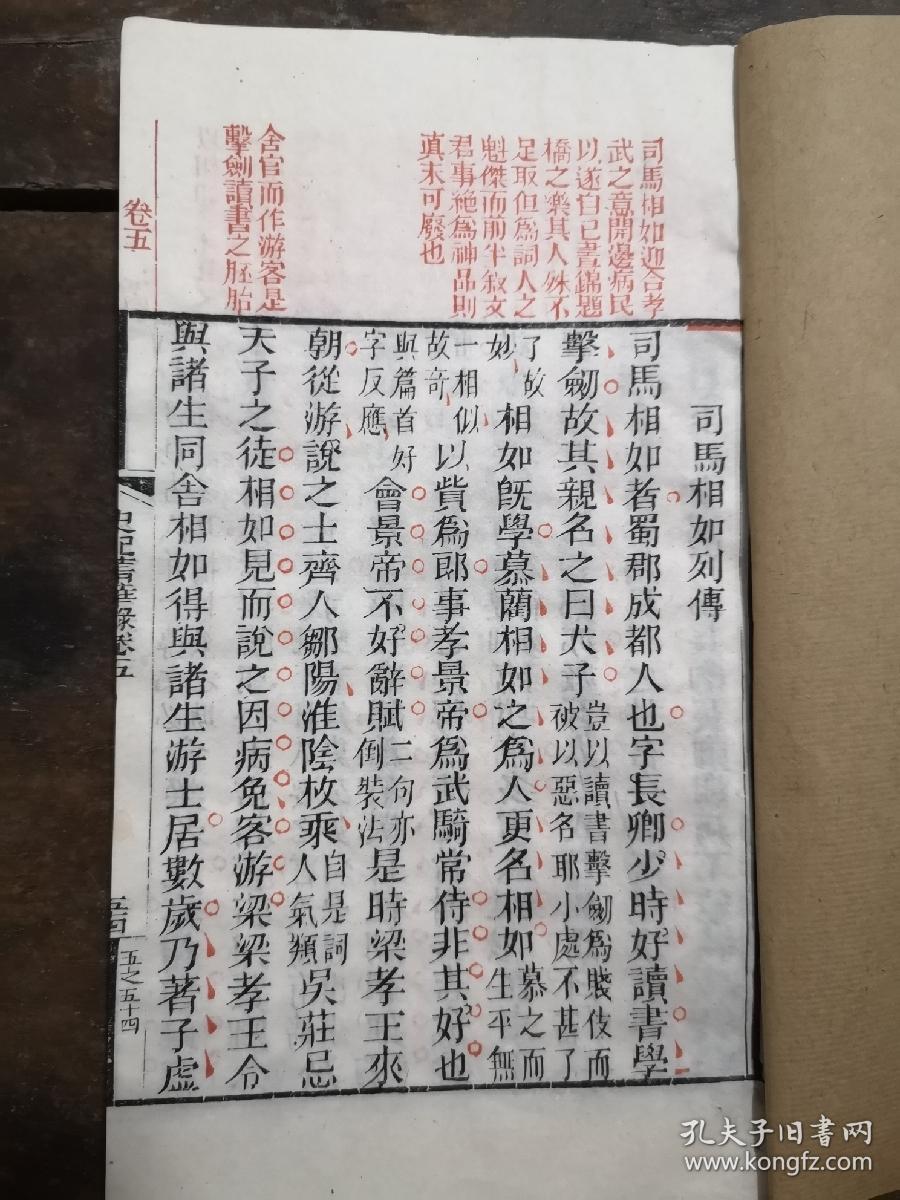 司馬相如迎合孝
武之意開邊病民
以遂自已晝錦題
橋之樂其人殊不
足取但爲詞人之
魁傑而前半叙文
君事絕爲神品則
眞未可廢也
舍官而作游客是
擊劍讀書之胚胎
卷五
司馬相如列傳
司馬相如者蜀郡成都人也字長卿少時好讀書學
擊劒故其親名之曰犬子豈以讀書擊劒爲賤伎而被以惡名耶小處不甚了
了故妙相如旣學慕藺相如之爲人更名相如慕之而生平無
一相似故奇以貲爲郎事孝景帝爲武騎常侍非其好也
與篇首好字反應會景帝不好辭賦二句亦倒裝法是時梁孝王來
朝從游說之士齊人鄒陽淮陰枚乘自是詞人氣類吳莊忌
天子之徒相如見而說之因病免客游梁梁孝王令
與諸生同舍相如得與諸生游士居數歲乃著子虛
史記菁華錄卷五
五之五十四
孔夫子旧书网
www.kongfz.com